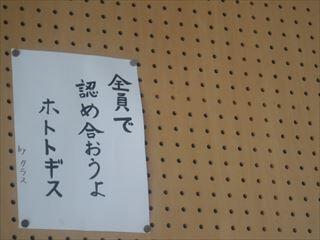 全員で
認め合おうよ
ホトトギス
by クラス